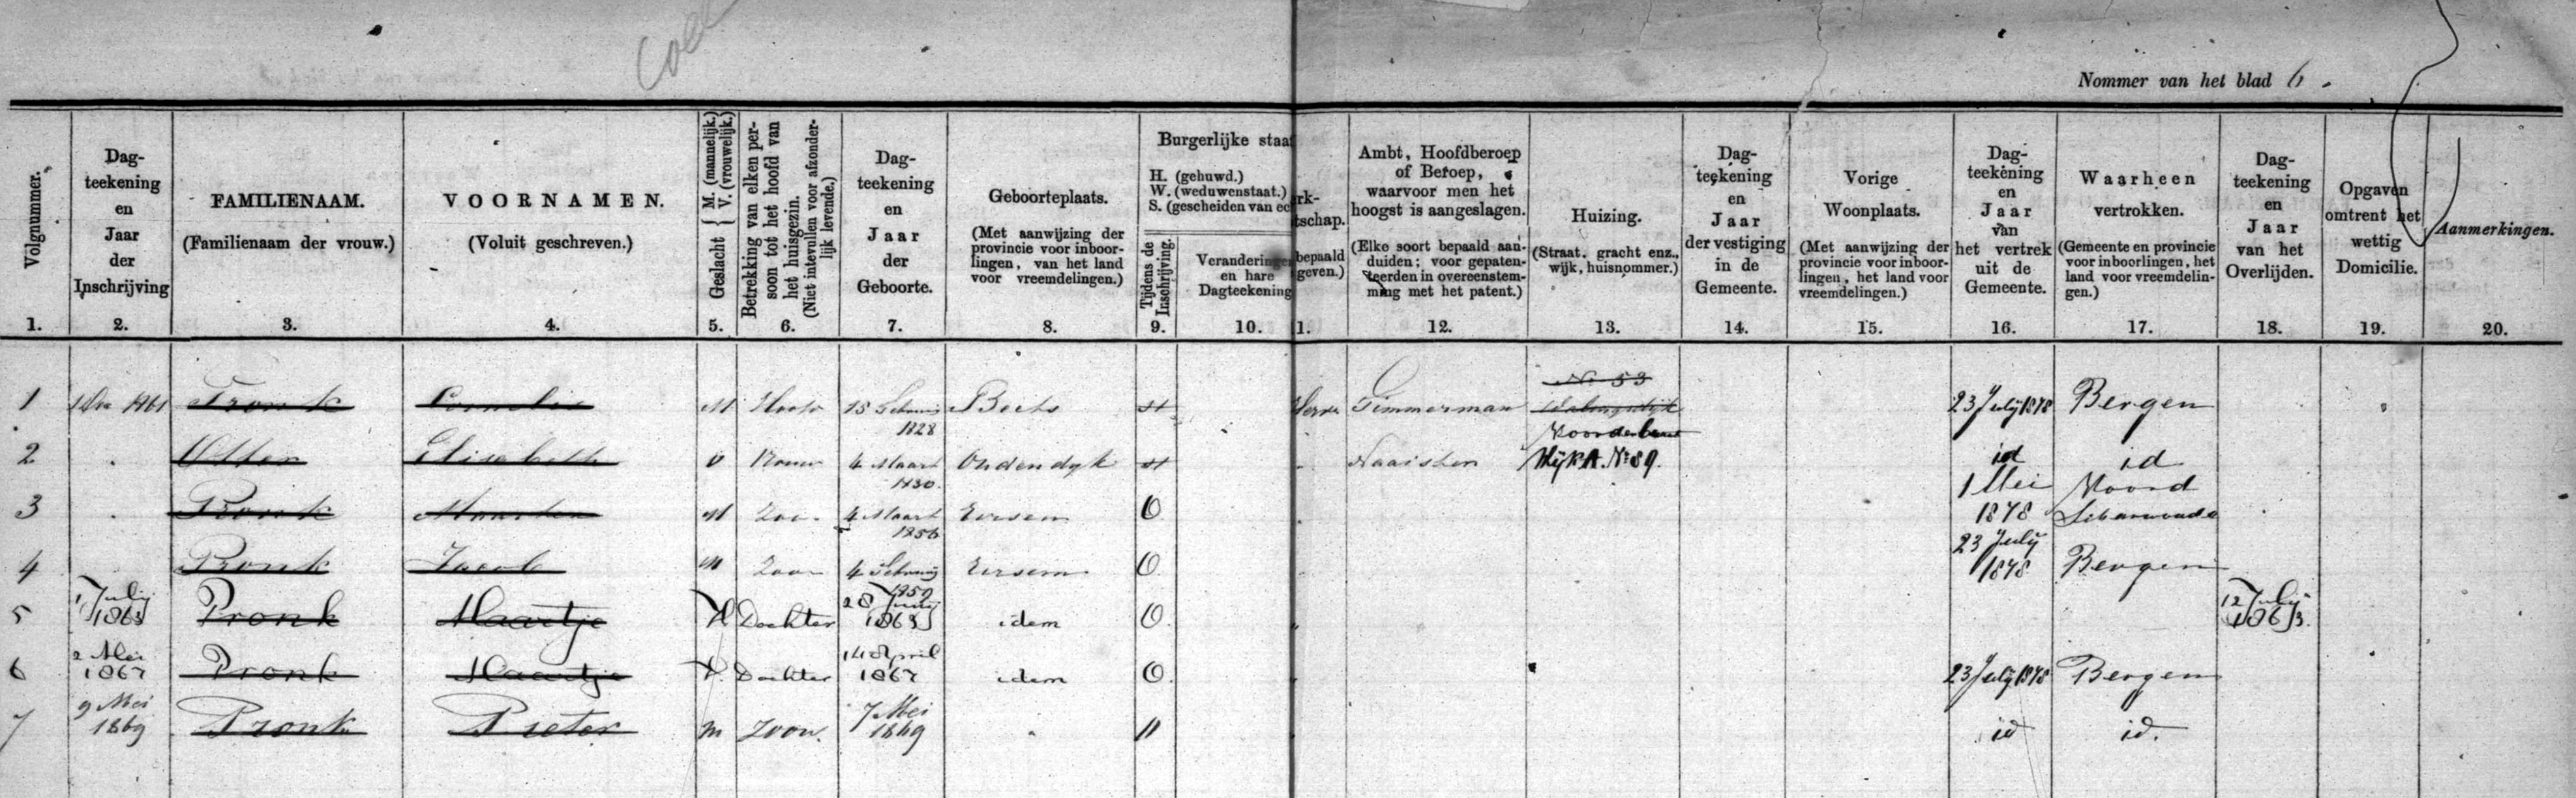 Nommer van het blad 6.
Volgnummer.
1.
Dag-
teekening
en
Jaar
der
Inschrijving
2.
FAMILIENAAM.
(Familienaam der vrouw.)
3.
VOORNAMEN.
(Voluit geschreven.)
4.
Geslacht { M. (mannelijk.)
V. (vrouwelijk.)
5.
Betrekking van elken per-
soon tot het hoofd van
het huisgezin.
(Niet intevullen voor afzonder-
lijk levende.)
6.
Dag-
teekening
en
Jaar
der
Geboorte.
7.
Geboorteplaats.
(Met aanwijzing der
provincie voor inboor-
lingen, van het land
voor vreemdelingen.)
8.
Burgerlijke staat
H. (gehuwd.)
W. (weduwenstaat.)
S. (gescheiden van ec
Tijdens de
Inschrijving.
9.
Veranderingen
en hare
Dagteekening
10.
rk-
tschap.
bepaald
geven.)
1.
Ambt, Hoofdberoep
of Beroep,
waarvoor men het
hoogst is aangeslagen.
(Elke soort bepaald aan-
duiden; voor gepaten-
teerden in overeenstem-
ming met het patent.)
12.
Huizing.
(Straat, gracht enz.,
wijk, huisnommer.)
13.
Dag-
teekening
en
Jaar
der vestiging
in de
Gemeente.
14.
Vorige
Woonplaats.
(Met aanwijzing der
provincie voor inboor-
lingen, het land voor
vreemdelingen.)
15.
Dag-
teekening
en
Jaar
van
het vertrek
uit de
Gemeente.
16.
Waarheen
vertrokken.
(Gemeente en provincie
voor inboorlingen, het
land voor vreemdelin-
gen.)
17.
Dag-
teekening
en
Jaar
van het
Overlijden.
18.
Opgaven
omtrent het
wettig
Domicilie.
19.
Aanmerkingen.
20.
1 1861 Pronk Cornelis M Hoofd 15 Februarij 1828 Beets H Herv. Timmerman No 53 23 July 1878 Bergen
2 Otter Elisabeth V Vrouw 4 Maart 1830 Oudendyk H Naaister Wijk A. No 89. id id
3 Pronk Maarten M Zoon 4 Maart 1856 Eersem O 1 Mei 1878 Noord Scharwoude
4 Pronk Jacob M Zoon 4 Februarij 1859 Eersem O 23 July 1878 Bergen
5 1 July 1863 Pronk Maartje V Dochter 28 Junij 1863 idem O 12 July 1863.
6 2 Mei 1867 Pronk Maartje V. Dochter 14 April 1867 idem O 23 July 1878 Bergen
7 9 Mei 1869 Pronk Pieter m Zoon. 7 Mei 1869 " id id.